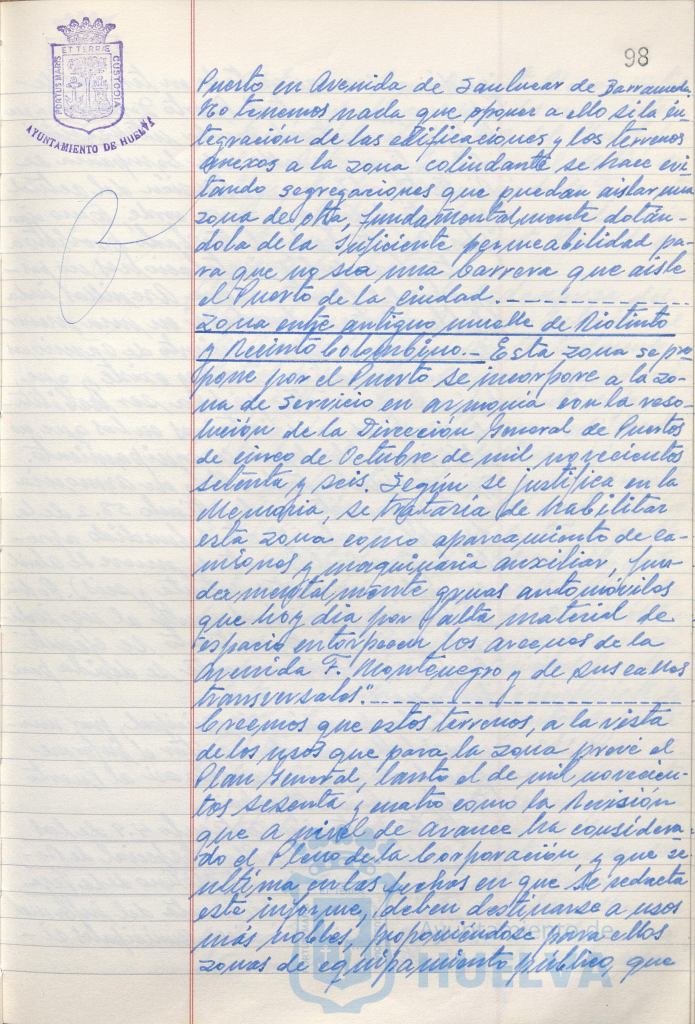 98
PORTUS MARIS ET TERRÆ CUSTODIA
AYUNTAMIENTO DE HUELVA
Puerto en Avenida de Sanlucar de Barrameda.
No tenemos nada que oponer a ello si la in-
tegración de las edificaciones y los terrenos
anexos a la zona colindante se hace evi
tando segregaciones que puedan aislar una
zona de otra, fundamentalmente dotán-
dola de la suficiente permeabilidad pa-
ra que no sea una barrera que aisle
el Puerto de la ciudad.
Zona entre antiguo muelle de Riotinto
y Recinto Colombino.- Esta zona se pro
pone por el Puerto se incorpore a la zo-
na de Servicio en armonía con la reso-
lución de la Dirección General de Puertos
de cinco de Octubre de mil novecientos
setenta y seis. Según se justifica en la
Memoria, se trataría de habilitar
esta zona como aparcamiento de ca-
miones y maquinaria auxiliar, fun-
damentalmente gruas automóviles
que hoy dia por falta material de
espacio entorpecen los arcenes de la
Avenida F. Montenegro y de sus calles
transversales".
Creemos que estos terrenos, a la vista
de los usos que para la zona prevé el
Plan General, tanto el de mil novecien-
tos sesenta y cuatro como la Revisión
que a nivel de avance ha considera-
do el Pleno de la Corporación, y que se
ultima en las fechas en que se redacta
este informe, deben destinarse a usos
más nobles, proponiéndose para ellos
zonas de equipamiento público, que
Ayuntamiento de
HUELVA